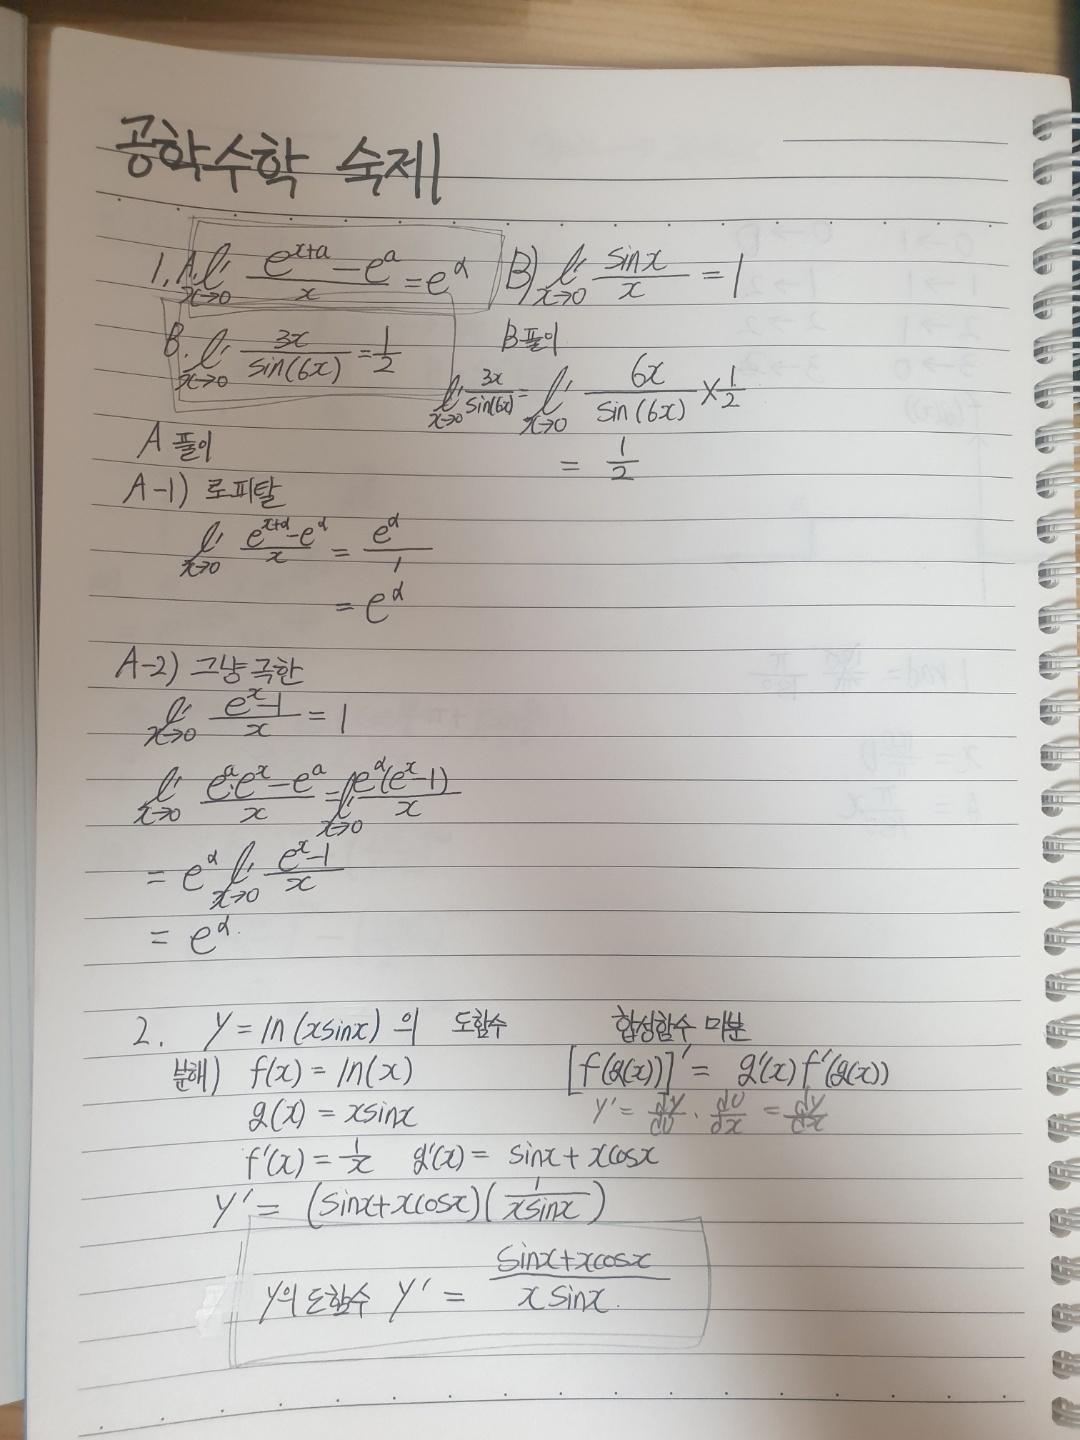 공학수학 숙제
1. A. lim x→0 (e^(x+a) - e^a)/x = e^a
B) lim x→0 sinx/x = 1
B. lim x→0 3x/sin(6x) = 1/2
B 풀이
lim x→0 3x/sin(6x) = lim x→0 6x/sin(6x) × 1/2
= 1/2
A 풀이
A-1) 로피탈
lim x→0 (e^(x+a) - e^a)/x = e^a/1
= e^a
A-2) 그냥 극한
lim x→0 (e^x - 1)/x = 1
lim x→0 (e^a·e^x - e^a)/x = lim x→0 e^a(e^x - 1)/x
= e^a lim x→0 (e^x - 1)/x
= e^a.
2. y = ln(xsinx) 의 도함수
분해) f(x) = ln(x)
g(x) = xsinx
f'(x) = 1/x g'(x) = sinx + xcosx
합성함수 미분
[f(g(x))]' = g'(x) f'(g(x))
y' = dy/du · du/dx = dy/dx
y' = (sinx+xcosx)(1/xsinx)
y의 도함수 y' = (sinx+xcosx)/(xsinx).